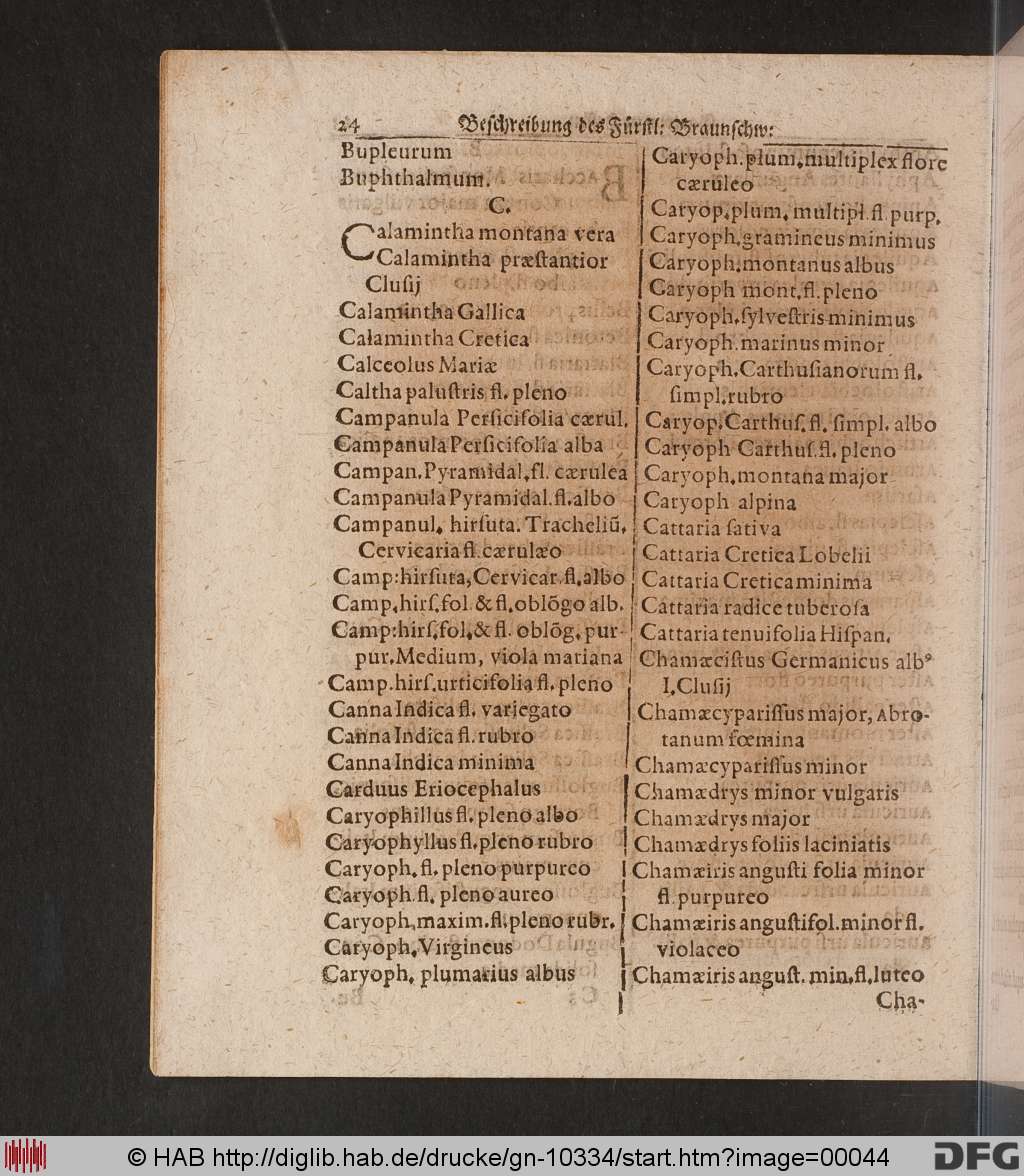 24 Beſchreibung des Fürſtl: Braunſchw:
Bupleurum
Buphthalmum.
C.
Calamintha montana vera
Calamintha præſtantior
Cluſij
Calamintha Gallica
Calamintha Cretica
Calceolus Mariæ
Caltha paluſtris fl. pleno
Campanula Perſicifolia cærul.
Campanula Perſicifolia alba
Campan. Pyramidal. fl. cærulea
Campanula Pyramidal. fl. albo
Campanul. hirſuta. Tracheliũ.
Cervicaria fl. cærulæo
Camp: hirſuta, Cervicar. fl. albo
Camp. hirſ. fol & fl. oblõgo alb.
Camp: hirſ. fol. & fl. oblõg. pur-
pur. Medium, viola mariana
Camp. hirſ. urticifolia fl. pleno
Canna Indica fl. variegato
Canna Indica fl. rubro
Canna Indica minima
Carduus Eriocephalus
Caryophillus fl. pleno albo
Caryophyllus fl. pleno rubro
Caryoph. fl. pleno purpureo
Caryoph. fl. pleno aureo
Caryoph. maxim. fl. pleno rubr.
Caryoph. Virgineus
Caryoph. plumarius albus
Caryoph. plum. multiplex flore
cæruleo
Caryop. plum. multipl. fl. purp.
Caryoph. gramineus minimus
Caryoph. montanus albus
Caryoph mont. fl. pleno
Caryoph. ſylveſtris minimus
Caryoph. marinus minor
Caryoph. Carthuſianorum fl.
ſimpl. rubro
Caryop. Carthuſ. fl. ſimpl. albo
Caryoph Carthuſ. fl. pleno
Caryoph. montana major
Caryoph alpina
Cattaria ſativa
Cattaria Cretica Lobelii
Cattaria Cretica minima
Cattaria radice tuberoſa
Cattaria tenuifolia Hiſpan.
Chamæciſtus Germanicus albꝰ
I. Cluſij
Chamæcypariſſus major, Abro-
tanum fœmina
Chamæcypariſſus minor
Chamædrys minor vulgaris
Chamædrys major
Chamædrys foliis laciniatis
Chamæiris anguſti folia minor
fl. purpureo
Chamæiris anguſtifol. minor fl.
violaceo
Chamæiris anguſt. min. fl. luteo
Cha-
© HAB http://diglib.hab.de/drucke/gn-10334/start.htm?image=00044
DFG